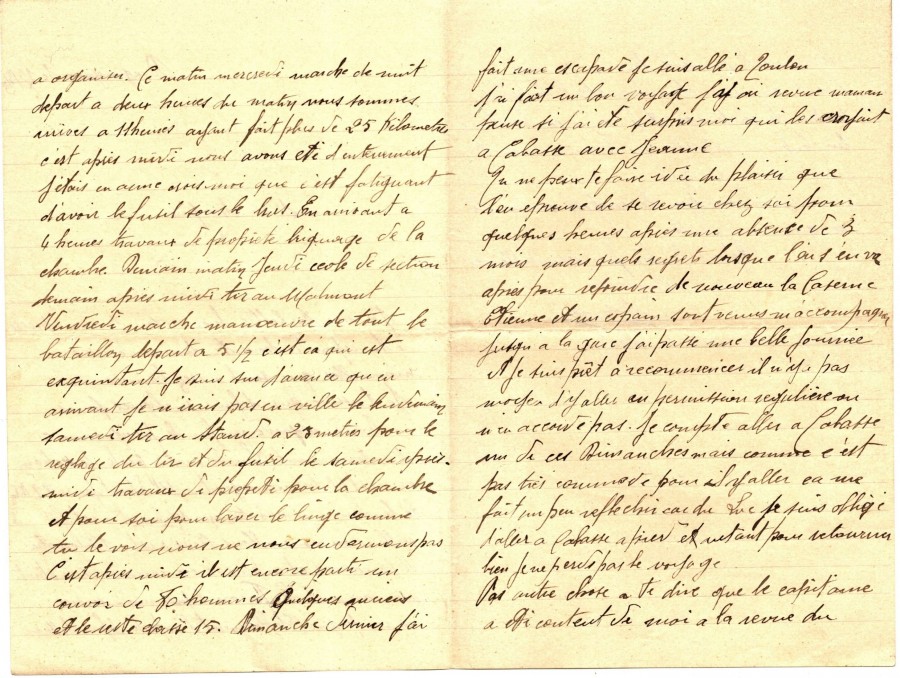 a organiser. Ce matin mercredi marche de nuit
depart a deux heures du matin nous sommes
arrives a 11 heures ayant fait plus de 25 Kilometres
c'est après midi nous avons eté d'enterrement
j'étais en arme crois-moi que c'est fatiguant
d'avoir le fusil sous le bras. En arrivant a
4 heures travaux de propreté briquage de la
chambre. Demain matin Jeudi ecole de section
demain après midi tir au Malmont
Vendredi marche manœuvre de tout le
bataillon depart a 5 1/2 c'est ca qui est
exquintant. Je suis sur d'avance qu'en
arrivant je n'irais pas en ville le lendemain
samedi tir au Stand. a 25 metres pour le
reglage du tir et du fusil le samedi après-
midi travaux de propreté pour la chambre
et pour soi pour laver le linge comme
tu le vois nous ne nous endormons pas
C'est après midi il est encore parti un
convoi de hommes Quelques anciens
et le reste classe 15. Dimanche dernier j'ai
fait une escapade je suis allé a Toulon
j'ai fait un bon voyage j'ai revue maman
pense si j'ai eté surpris moi qui les croyait
a Cabasse avec Jeanne
On ne peux te faire idée du plaisir que
l'on eprouve de se revoir chez soi pour
quelques heures après une absence de 3
mois mais quels regrets lorsque l'on s'en va
après pour rejoindre de nouveau la Caserne
Etienne et un copain sont venus m'accompagner
jusqu'a la gare j'ai passé une belle journée
et je suis prêt a recommencer il n'y a pas
moyen d'y aller en permission reguliere on
n'en accorde pas. Je compte aller a Cabasse
un de ces Dimanches mais comme c'est
pas très commode pour y aller ca me
fait un peu reflechir car du Luc je suis obligé
d'aller a Cabasse a pied et autant pour retourner
bien je ne perds pas le voyage
Pas autre chose a te dire que le capitaine
a eté content de moi a la revue du